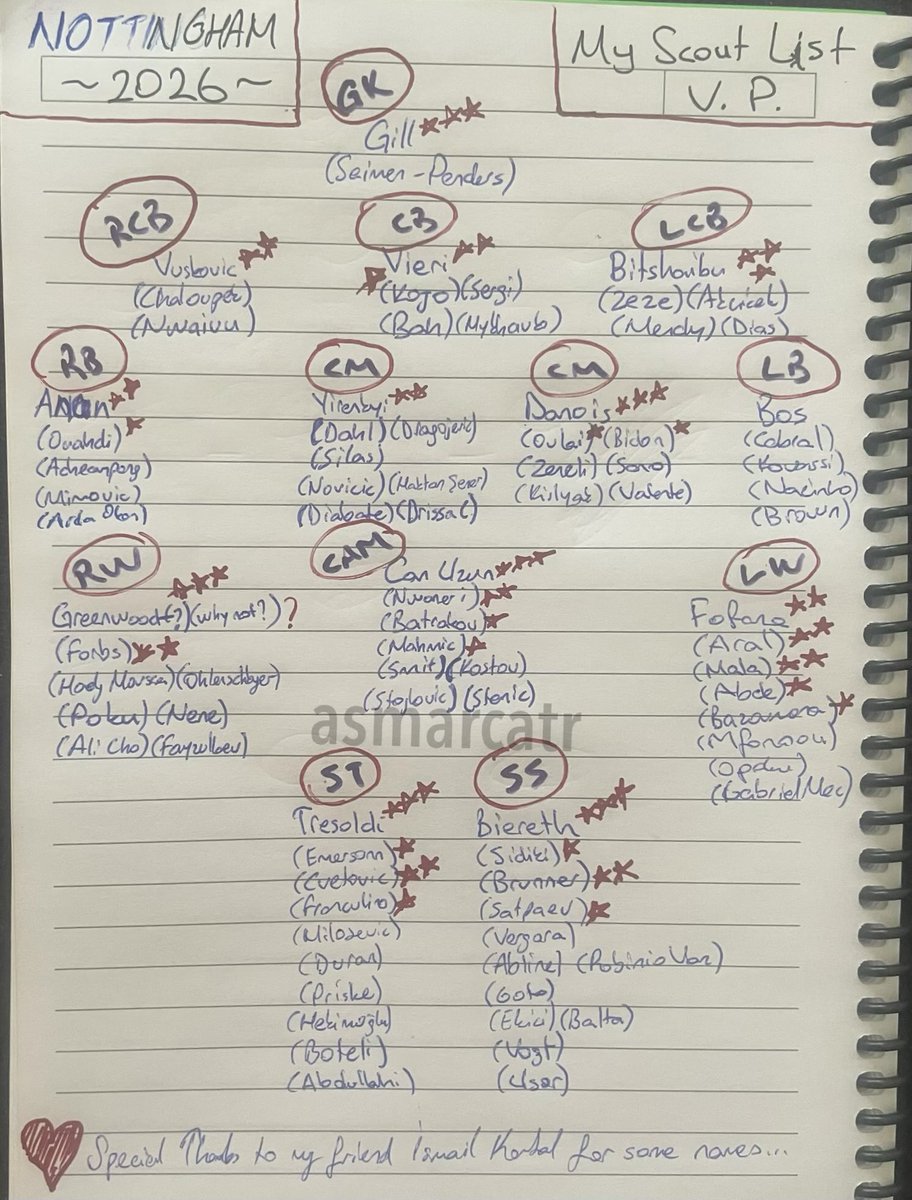 NOTTINGHAM
~2026~
My Scout List
V. P.
GK
Gill
(Seimen-Penders)
RCB
Vuskovic
(Chaloupek)
(Nwaiwu)
CB
Vieri
(Kojo) (Sergi)
(Bah) (Mykhavko)
LCB
Bitshiabu
(Zeze) (Akcicek)
(Mendy) (Dias)
RB
(Ouahdi)
(Adheampong)
(Mimovic)
CM
Yirenkyi
(Dahl) (Dragojevic)
(Silas)
(Novicic) (Haktan Şener)
(Diabate) (Drissa C)
CM
Danois
(Oulai) (Bidon)
(Zeneli) (Soro)
(Kirlyaş) (Valente)
LB
Bos
(Cabral)
(Kouassi)
(Nacinho)
(Brown)
RW
Greenwood(?) (why not?) ?
(Forbs)
(Hady Moussa) (Ohlenschlager)
(Poku) (Nene)
(Ali Cho) (Fayzullaev)
CAM
Can Uzun
(Nwaneri)
(Batrakov)
(Mahmic)
(Smit) (Kostov)
(Stojkovic) (Stenic)
LW
Fofana
(Aral)
(Mala)
(Abde)
(Bazoumana)
(Opdev)
(Gabriel Mec)
asmarcatr
ST
Tresoldi
(Emersonn)
(Cvetovic)
(Franculino)
(Milosevic)
(Duran)
(Priske)
(Hekimoğlu)
(Boteli)
(Abdullahi)
SS
Biereth
(Sidiki)
(Brunner)
(Satpaev)
(Vergara)
(Abline) (Robinio Vaz)
(Goto)
(Ekici) (Balta)
(Vogt)
(Uşar)
Special Thanks to my friend İsmail Kartal for some names...